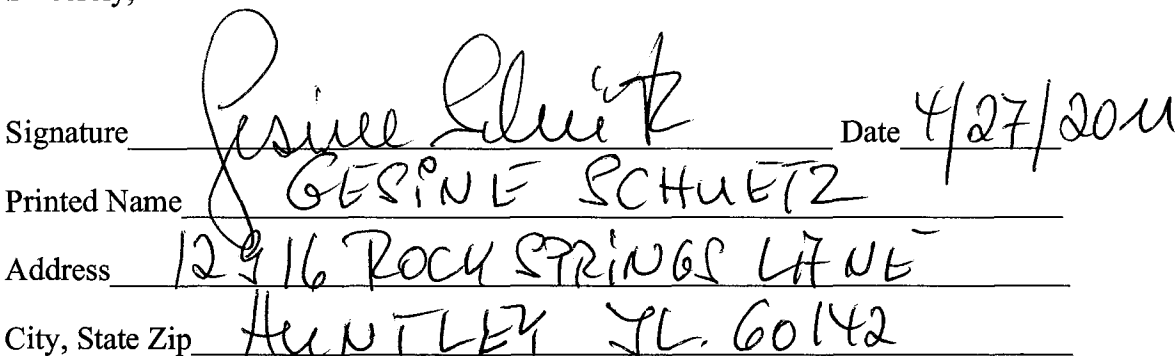 Signature Gesine Schütz Date 4/27/2011
Printed Name GESINE SCHUETZ
Address 12916 ROCK SPRINGS LANE
City, State Zip HUNTLEY IL. 60142